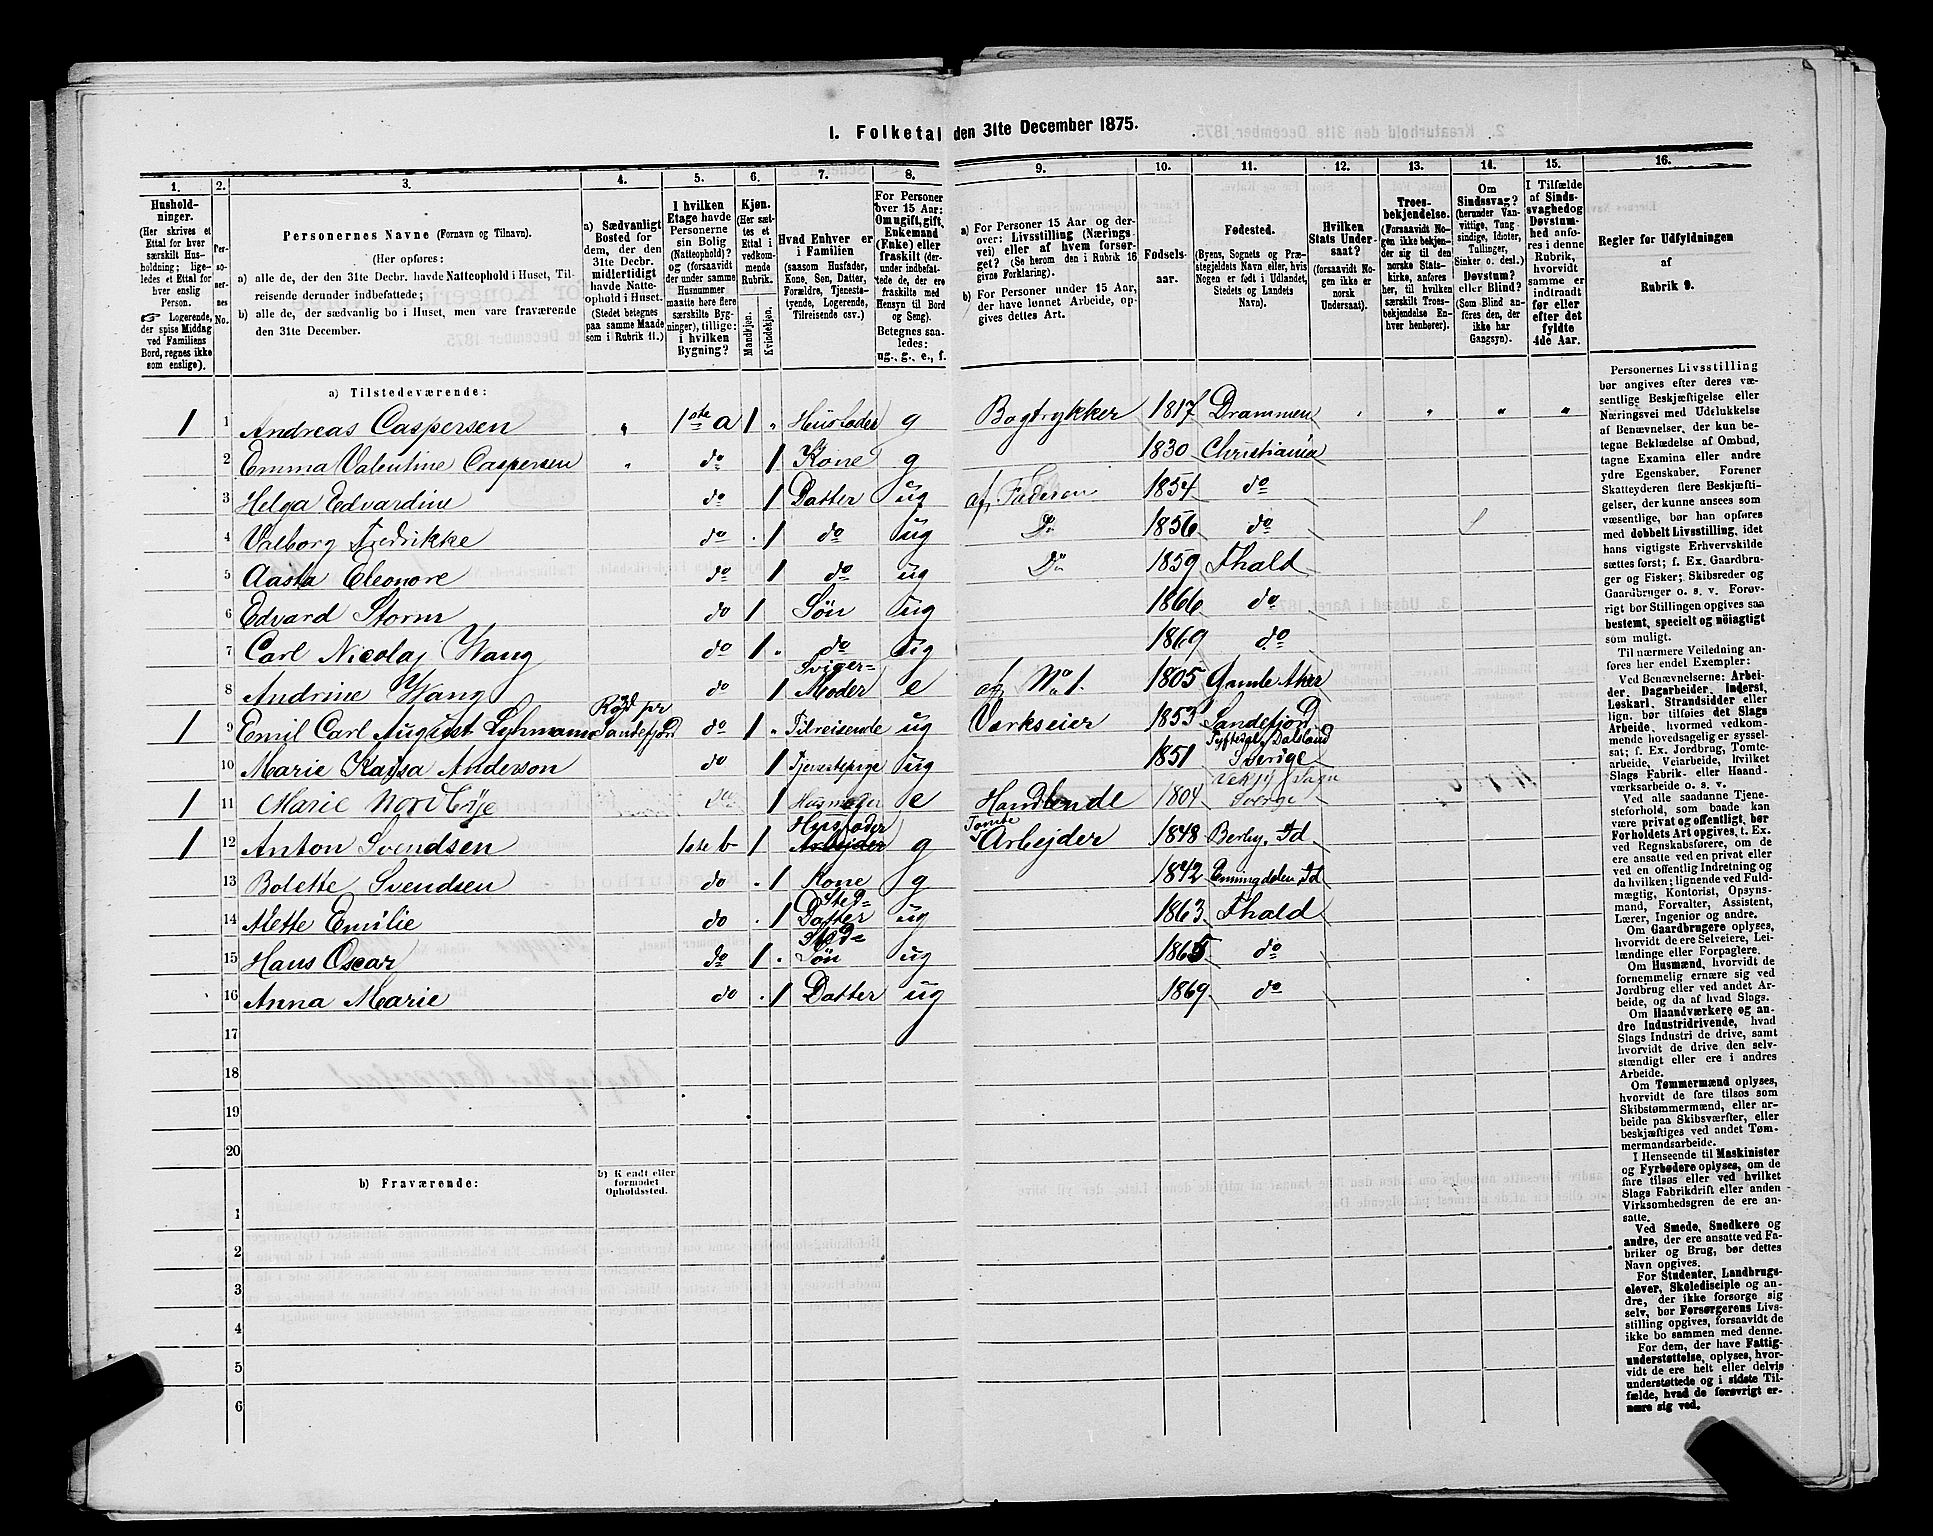 1. Folketal den 31te December 1875.
1. 2. 3. 4. 5. 6. 7. 8. 9. 10. 11. 12. 13. 14. 15. 16.
Husholdninger.
(Her skrives et Ettal for hver særskilt Husholdning; ligeledes et Ettal for hver enslig Person.
☞ Logerende, der spise Middag ved Familiens Bord, regnes ikke som enslige).
Personernes No.
Personernes Navne (Fornavn og Tilnavn).
(Her opføres:
a) alle de, der den 31te Decbr. havde Natteophold i Huset, Tilreisende derunder indbefattede;
b) alle de, der sædvanlig bo i Huset, men vare fraværende den 31te December.
a) Sædvanligt Bosted for dem, der den 31te Decbr. midlertidigt havde Natteophold i Huset. (Stedet betegnes paa samme Maade som i Rubrik 11.)
I hvilken Etage havde Personerne sin Bolig (Natteophold)? og (forsaavidt der under samme Husnummer maatte høre flere særskilte Bygninger), tillige: i hvilken Bygning?
Kjøn. (Her sættes et Ettal i vedkommende Rubrik. Mandkjøn. Kvindekjøn.
Hvad Enhver er i Familien
(saasom Husfader, Kone, Søn, Datter, Forældre, Tjenestetyende, Logerende, Tilreisende osv.)
For Personer over 15 Aar: Om ugift, gift, Enkemand (Enke) eller fraskilt (derunder indbefattede de, der ere fraskilte med Hensyn til Bord og Seng). Betegnes saaledes: ug., g., e., f.
a) For Personer 15 Aar og derover: Livsstilling (Næringsvei) eller af hvem forsørget? (Se herom den i Rubrik 16 givne Forklaring).
b) For Personer under 15 Aar, der have lønnet Arbeide, opgives dettes Art.
Fødselsaar.
Fødested.
(Byens, Sognets og Præstegjeldets Navn, eller, hvis Nogen er født i Udlandet, Stedets og Landets Navn).
Hvilken Stats Undersaat?
(forsaavidt Nogen ikke er norsk Undersaat).
Troesbekjendelse.
(Forsaavidt Nogen ikke bekjender sig til den norske Statskirke, anføres her, til hvilken særskilt Troesbekjendelse Enhver henhører).
Om Sindssvag? (herunder Vanvittige, Tungsindige, Idioter, Tullinger, Sinker o. desl.) Døvstum? eller Blind? (Som Blind anføres den, der ikke har Gangsyn).
I Tilfælde af Sindssvaghed og Døvstumhed anføres i denne Rubrik, hvorvidt samme er indtraadt før eller efter det fyldte 4de Aar.
Regler for Udfyldningen af Rubrik 9.
a) Tilstedeværende:
1 1 Andreas Caspersen „ 1ste a 1 „ Husfader g Bogtrykker 1817 Drammen
2 Emma Valentine Caspersen „ do 1 Kone g 1830 Christiania
3 Helga Edvardine do 1 Datter ug af Faderen 1854 do
4 Valborg Fredrikke do 1 do ug Do 1856 do
5 Aasta Eleonore do 1 do ug Do 1859 Fhald
6 Edvard Storm do 1 Søn ug 1866 do
7 Carl Nicolaj Wang do 1 do ug 1869 do
8 Andrine Wang do 1 Sviger= Moder e af No 1. 1805 Gamle Aker
1 9 Emil Carl August Lyhmann Rød pr Sandefjord do 1 „ Tilreisende ug Værkseier 1853 Sandefjord
10 Marie Kaysa Anderson do 1 Tjenestepige ug 1851 Dalsland Sverige
1 11 Marie Nordbye do 1 Husmoder e Handlende 1804 Sverge
1 12 Anton Svendsen 1ste b 1 Husfader Arbejder g Tomte Arbejder 1848 Berby, Id
13 Bolette Svendsen do 1 Kone g 1842 Enningdalen Id
14 Mette Emilie do 1 Sted= Datter ug 1863 Fhald
15 Hans Oscar do 1 Sted= Søn ug 1865 do
16 Anna Marie do 1 Datter ug 1869 do
17
18
19
20
b) Fraværende:
b) Kjendt eller formodet Opholdssted.
1
2
3
4
5
6
Personernes Livsstilling
bør angives efter deres væ-
sentlige Beskjæftigelse eller
Næringsvei med Udelukkelse
af Benævnelser, der kun be-
tegne Beklædelse af Ombud,
tagne Examina eller andre
ydre Egenskaber. Forener
Skatteyderen flere Beskjæfti-
gelser, der kunne ansees som
væsentlige, bør han opføres
med dobbelt Livsstilling, idet
hans vigtigste Erhvervskilde
sættes først; f. Ex. Gaardbru-
ger og Fisker; Skibsreder og
Gaardbruger o. s. v. Forøv-
rigt bør Stillingen opgives saa
bestemt, specielt og nöiagtigt
som muligt.
Til nærmere Veiledning an-
føres her endel Exempler:
Ved Benævnelserne: Arbei-
der, Dagarbeider, Inderst,
Løskarl, Strandsidder eller
lign. bør tilføies det Slags
Arbeide, hvormed vedkom-
mende hovedsagelig er syssel-
sat; f. Ex. Jordbrug, Tomte-
arbeide, Veiarbeide, hvilket
Slags Fabrik- eller Haand-
værksarbeide o. s. v.
Ved alle saadanne Tjene-
steforhold, som baade kan
være privat og offentligt, bør
Forholdets Art opgives, t. Ex.
ved Regnskabsførere, om de
ere ansatte ved en privat eller
en offentlig Indretning og da
hvilken; lignende ved Fuld-
mægtig, Kontorist, Opsyns-
mand, Forvalter, Assistent,
Lærer, Ingeniør og andre.
Om Gaardbrugere oplyses,
hvorvidt de ere Selveiere, Lei-
lændinge eller Forpagtere.
Om Husmænd, hvorvidt de
fornemmelig ernære sig ved
Jordbrug eller ved andet Ar-
beide, og da af hvad Slags.
Om Haandværkere og an-
dre Industridrivende, hvad
Slags Industri de drive, samt
hvorvidt de drive den selv-
stændigt eller ere i andres
Arbeide.
Om Tømmermænd oplyses,
hvorvidt de fare tilsøs som
Skibstømmermænd, eller ar-
beide paa Skibsværfter, eller
beskjæftiges ved andet Tøm-
mermandsarbeide.
I Henseende til Maskinister
og Fyrbødere oplyses, om de
fare tilsøs eller ved hvilket
Slags Fabrikdrift eller anden
Virksomhedsgren de ere an-
satte.
Ved Smede, Snedkere og
andre, der ere ansatte ved Fa-
briker og Brug, bør dettes
Navn opgives.
For Studenter, Landbrugs-
elever, Skoledisciple og an-
dre, der ikke forsørge sig
selv, bør Forsørgerens Livs-
stilling opgives, forsaavidt de
ikke bo sammen med denne.
For dem, der have Fattig-
understøttelse, oplyses, hvor-
vidt de ere helt eller delvis
understøttede og i sidste Til-
fælde, hvad de forøvrigt er-
nære sig ved.